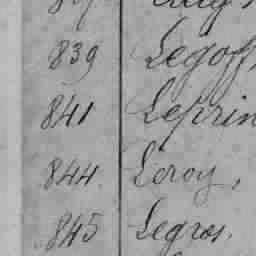 839 Legoff
841 Leprin
844. Leroy,
845 Legros.